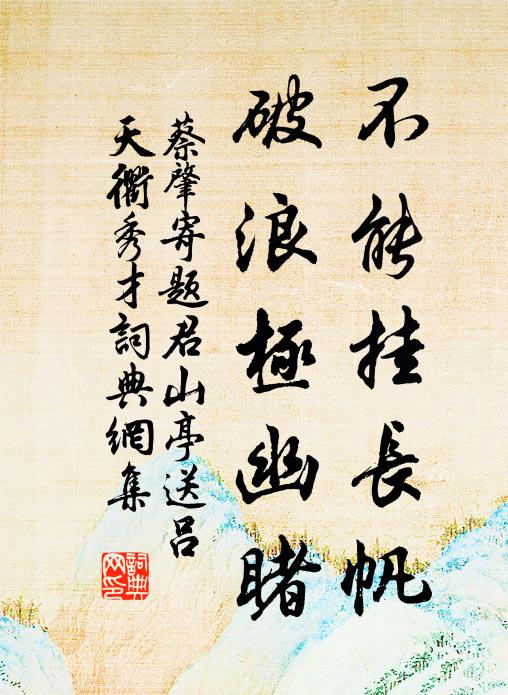 不能挂長帆
破浪極幽睹
蔡肇寄题君山亭送吕
天衢秀才詞典網集
詞典
网印